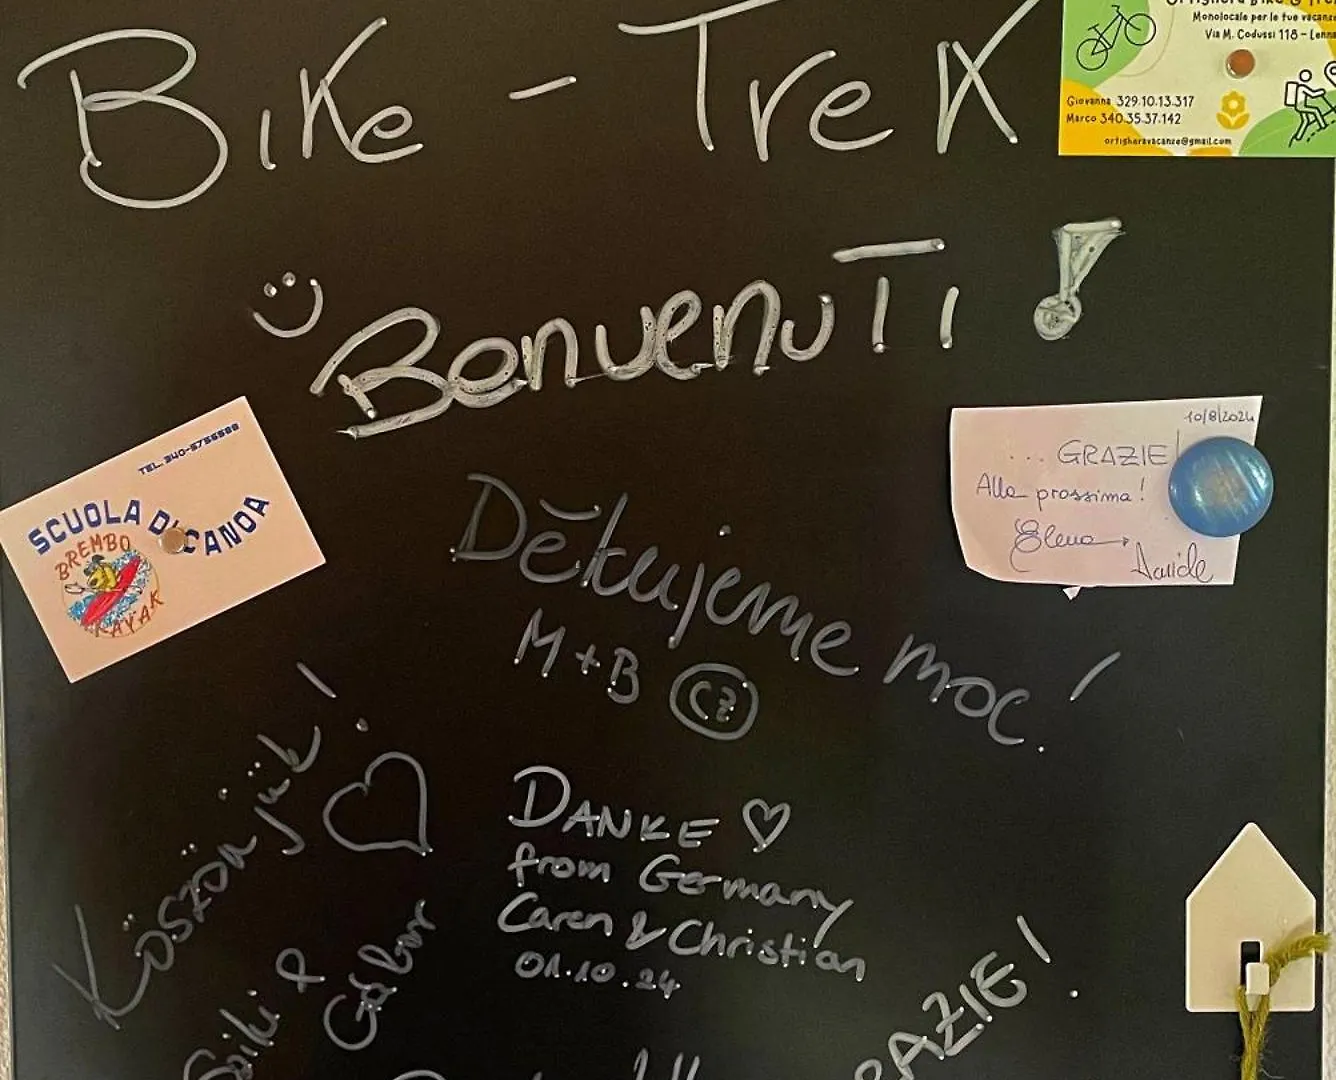 Bike - Trek
Monolocale per le tue vacanze
Via M. Codussi 118 - Lenna
Giovanna 329.10.13.317
Marco 340.35.37.142
ortigheravacanze@gmail.com
Benvenuti!
TEL. 340-5756588
SCUOLA DI CANOA
BREMBO
KAYAK
10/8/2024
... GRAZIE!
Alla prossima!
Elena
Davide
Děkujeme moc!
M+B CZ
Köszönjük!
& Gábor
DANKE ♡
from Germany
Caren & Christian
01.10.24
RAZIE!